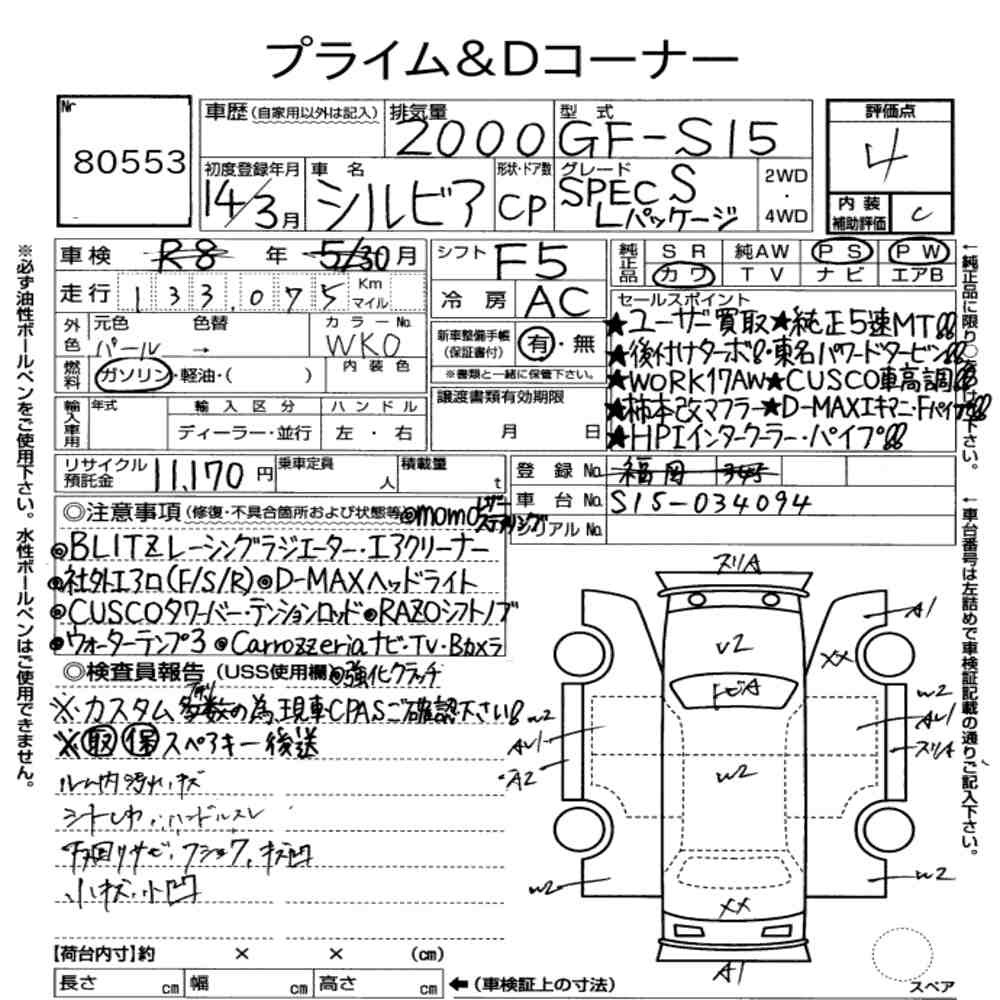 プライム&Dコーナー
Nr
80553
車歴(自家用以外は記入)
排気量
2000
型 式
GF-S15
評価点
4
初度登録年月
14/3月
車 名
シルビア
形状・ドア数
CP
グレード
SPEC S
Lパッケージ
2WD
・
4WD
内 装
補助評価
C
車検 R8 年 5/30月
シフト
F5
純正品
SR 純AW PS PW
カワ TV ナビ エアB
走行 133,075 Km
マイル
冷 房
AC
セールスポイント
★ユーザー買取★純正5速MT!!
★後付けターボ!・東名パワードタービン!!
★WORK17AW★CUSCO車高調!!
★柿本改マフラー★D-MAXエキマニ・Fパイプ!!
★HPIインタークーラー・パイプ!!
外色
元色 色替
パール →
カラーNo.
WK0
内 装 色
新車整備手帳
(保証書付)
有・無
※書類と一緒に保管下さい。
燃料
ガソリン・軽油・( )
譲渡書類有効期限
月 日
輸入車用
年式
輸 入 区 分
ディーラー・並行
ハ ン ド ル
左 ・ 右
リサイクル
預託金
11,170円
乗車定員
人
積載量
t
登 録 No. 福岡 345
車 台 No. S15-034094
シリアル No.
◎注意事項(修復・不具合箇所および状態等)
◎momoレザーステアリング
◎BLITZレーシングラジエーター・エアクリーナー
◎社外エアロ(F/S/R)◎D-MAXヘッドライト
◎CUSCOタワーバー・テンションロッド◎RAZOシフトノブ
◎ウォーターテンプ3 ◎Carrozzeriaナビ・TV・Bカメラ
◎検査員報告 (USS使用欄)
◎強化クラッチ
※カスタム多数の為、現車CPASご確認下さい!
※取 保 スペアキー後送
ルーム内汚れ・キズ
シートしわ・ハンドルスレ
下回りサビ・フショク,キズ凹
小キズ・小凹
【荷台内寸】約 × × (cm)
長さ cm 幅 cm 高さ cm
←(車検証上の寸法)
スリA
A1
V2
XX
トビA
W2
W2
AW1
AW1
スリA
A2
W2
W2
W2
XX
A1
スペア
※必ず油性ボールペンをご使用下さい。水性ボールペンはご使用できません。
←純正品に限り○をつけて下さい。
←車台番号は左詰めで車検証記載の通りご記入下さい。